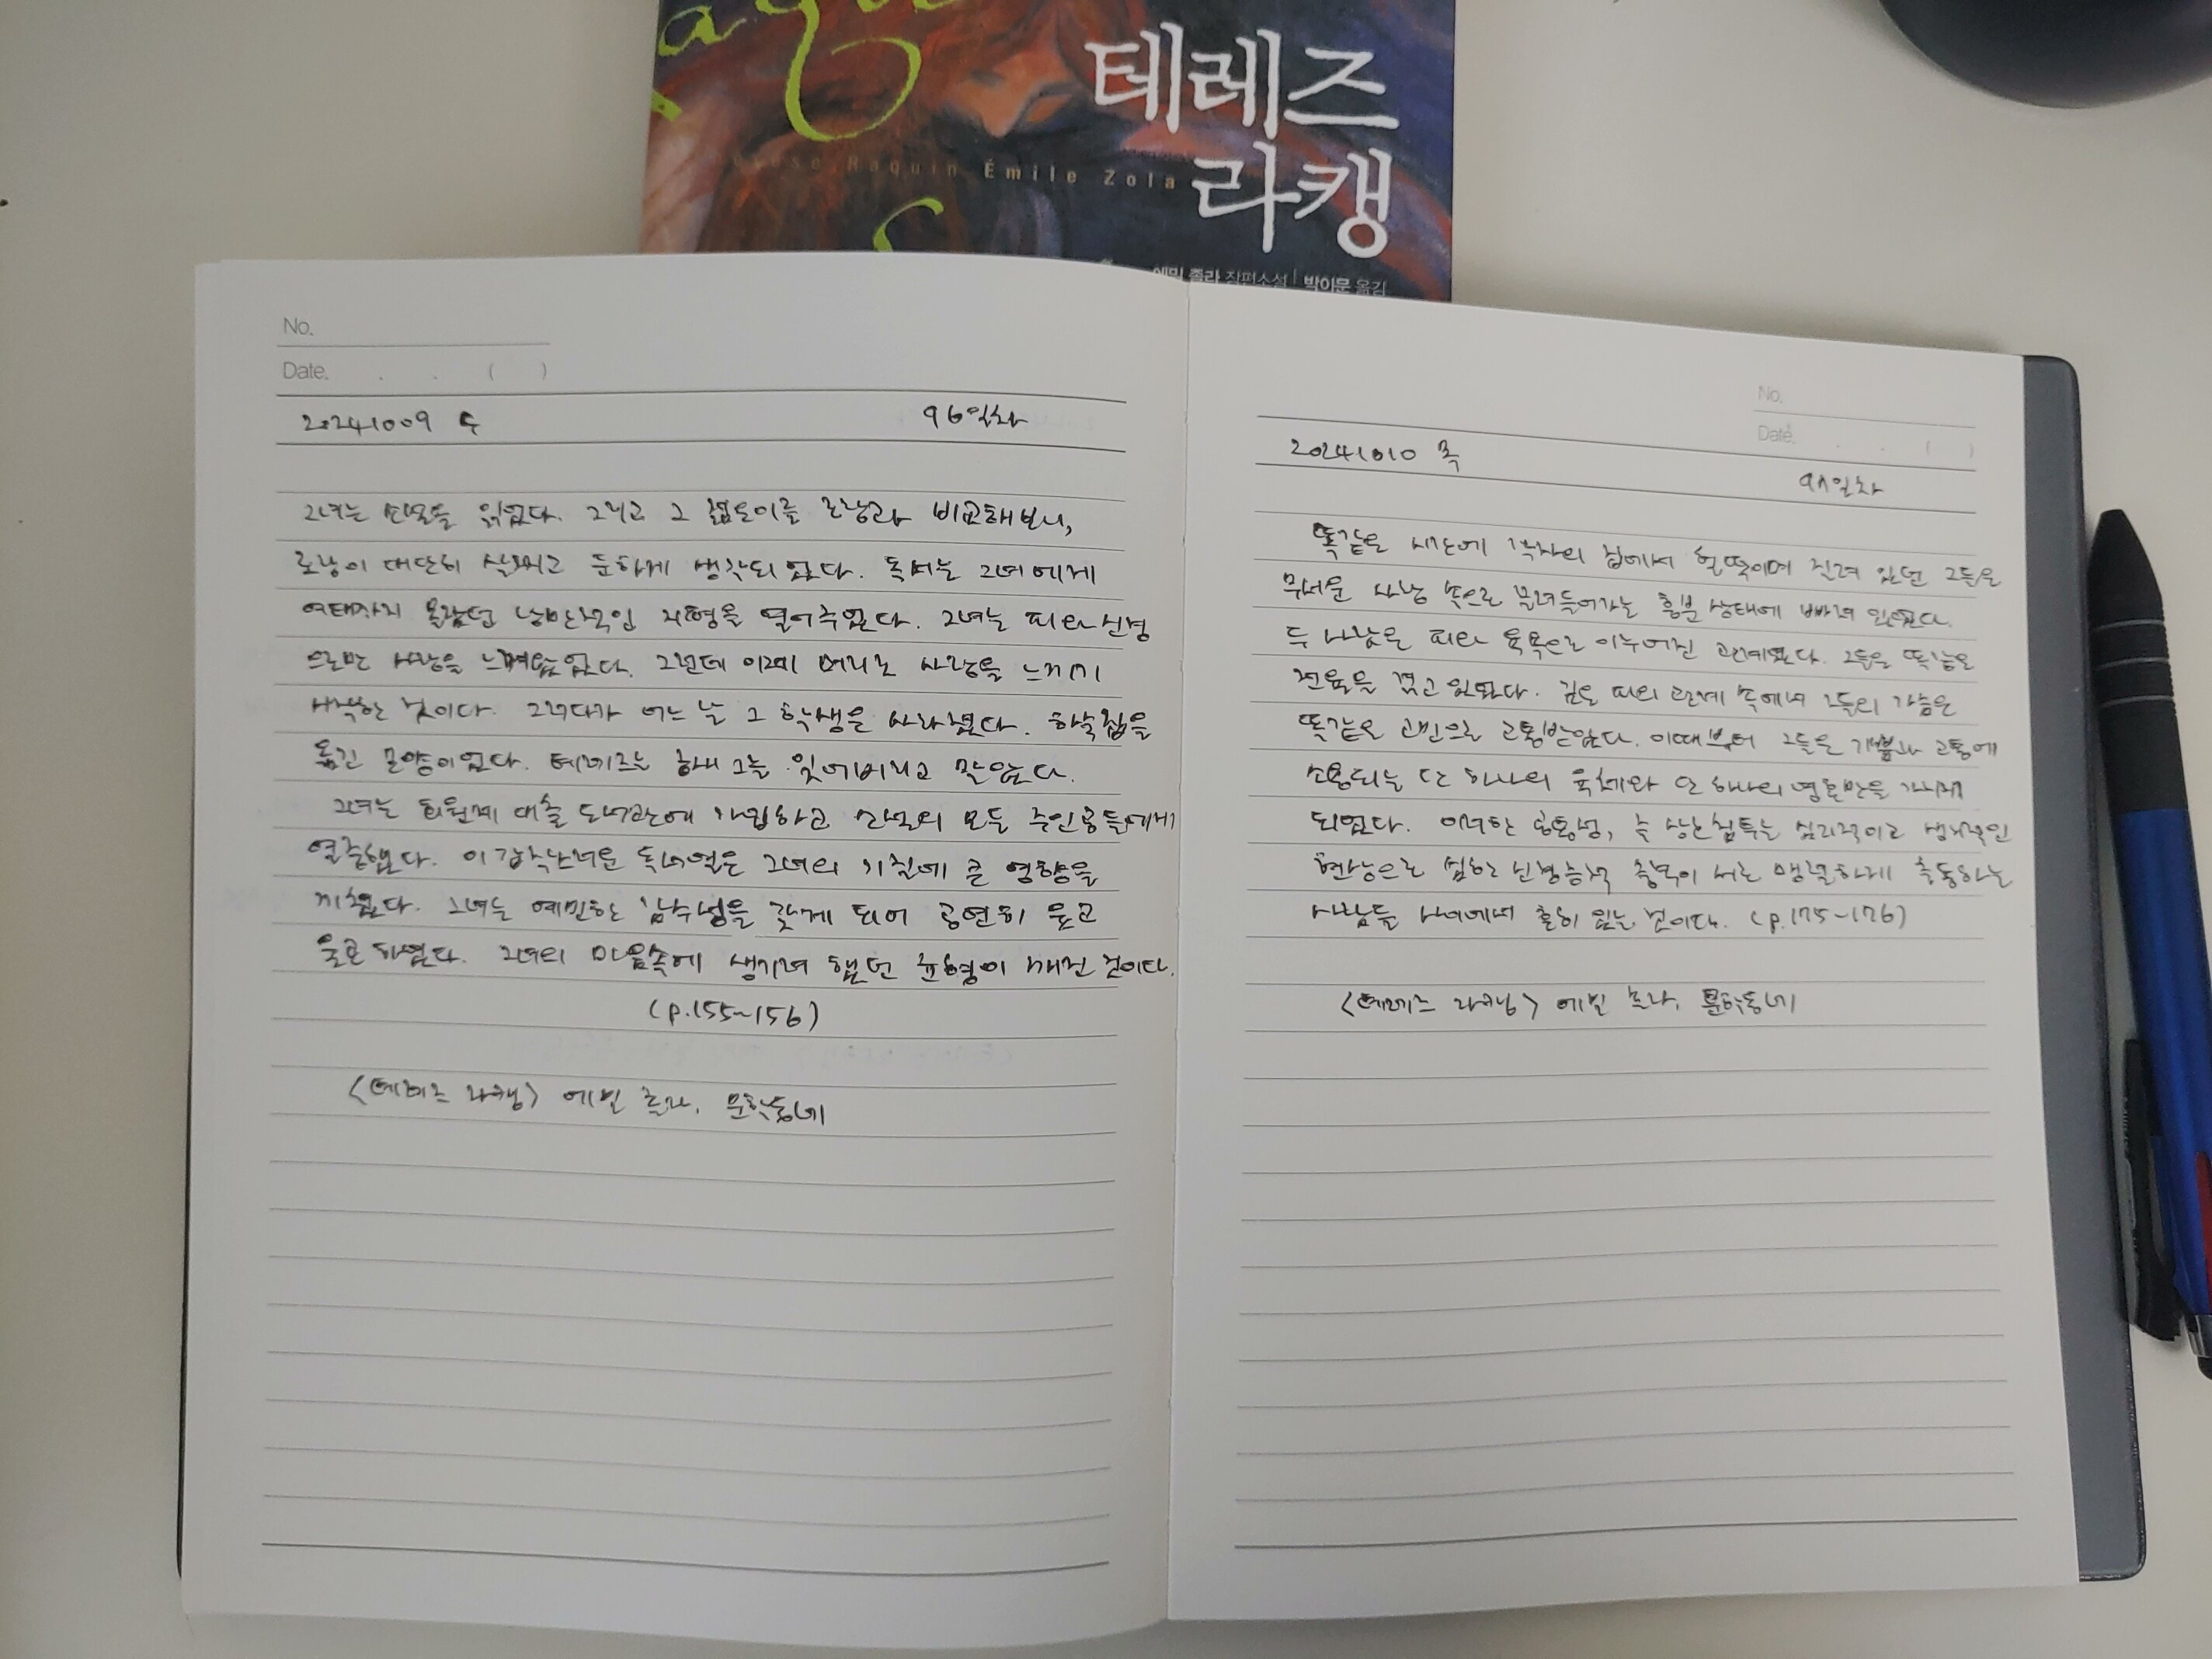 테레즈
라캥
Thérèse Raquin Émile Zola
에밀 졸라 장편소설 | 박이문 옮김
No.
Date. . . ( )
20241009 수 96일차
그녀는 소설을 읽었다. 그리고 그 젊은이를 로랑과 비교해보니,
로랑이 대단히 살찌고 둔하게 생각되었다. 독서는 그녀에게
여태까지 몰랐던 낭만적인 지평을 열어주었다. 그녀는 피와 신경
으로만 사랑을 느껴왔었다. 그런데 이제 머리로 사랑을 느끼기
시작한 것이다. 그러다가 어느 날 그 학생은 사라졌다. 하숙집을
옮긴 모양이었다. 테레즈는 해내 그를 잊어버리고 말았다.
그녀는 회원제 대출 도서관에 가입하고 소설의 모든 주인공들에게
열중했다. 이 갑작스러운 독서열은 그녀의 기질에 큰 영향을
끼쳤다. 그녀는 예민한 감수성을 갖게 되어 공연히 웃고
울곤 하였다. 그녀의 마음속에 생기려 했던 균형이 깨진 것이다.
(p.155~156)
<테레즈 라캥> 에밀 졸라, 문학동네
No.
Date. . . ( )
20241010 목
97일차
똑같은 시간에 각자의 집에서 헐떡이며 질려 있던 그들은
무서운 사랑 속으로 끌려들어가는 흥분 상태에 빠져 있었다.
두 사람은 피와 육욕으로 이루어진 관계였다. 그들은 똑같은
전율을 겪고 있었다. 깊은 피의 관계 속에서 그들의 가슴은
똑같은 고민으로 고통받았다. 이때부터 그들은 기쁨과 고통에
소용되는 단 하나의 육체와 단 하나의 영혼만을 가지게
되었다. 이러한 공통성, 즉 상호침투는 심리적이고 생리적인
현상으로 심한 신경증적 충격이 서로 맹렬하게 충돌하는
사람들 사이에서 흔히 있는 것이다. (p.175~176)
<테레즈 라캥> 에밀 졸라, 문학동네